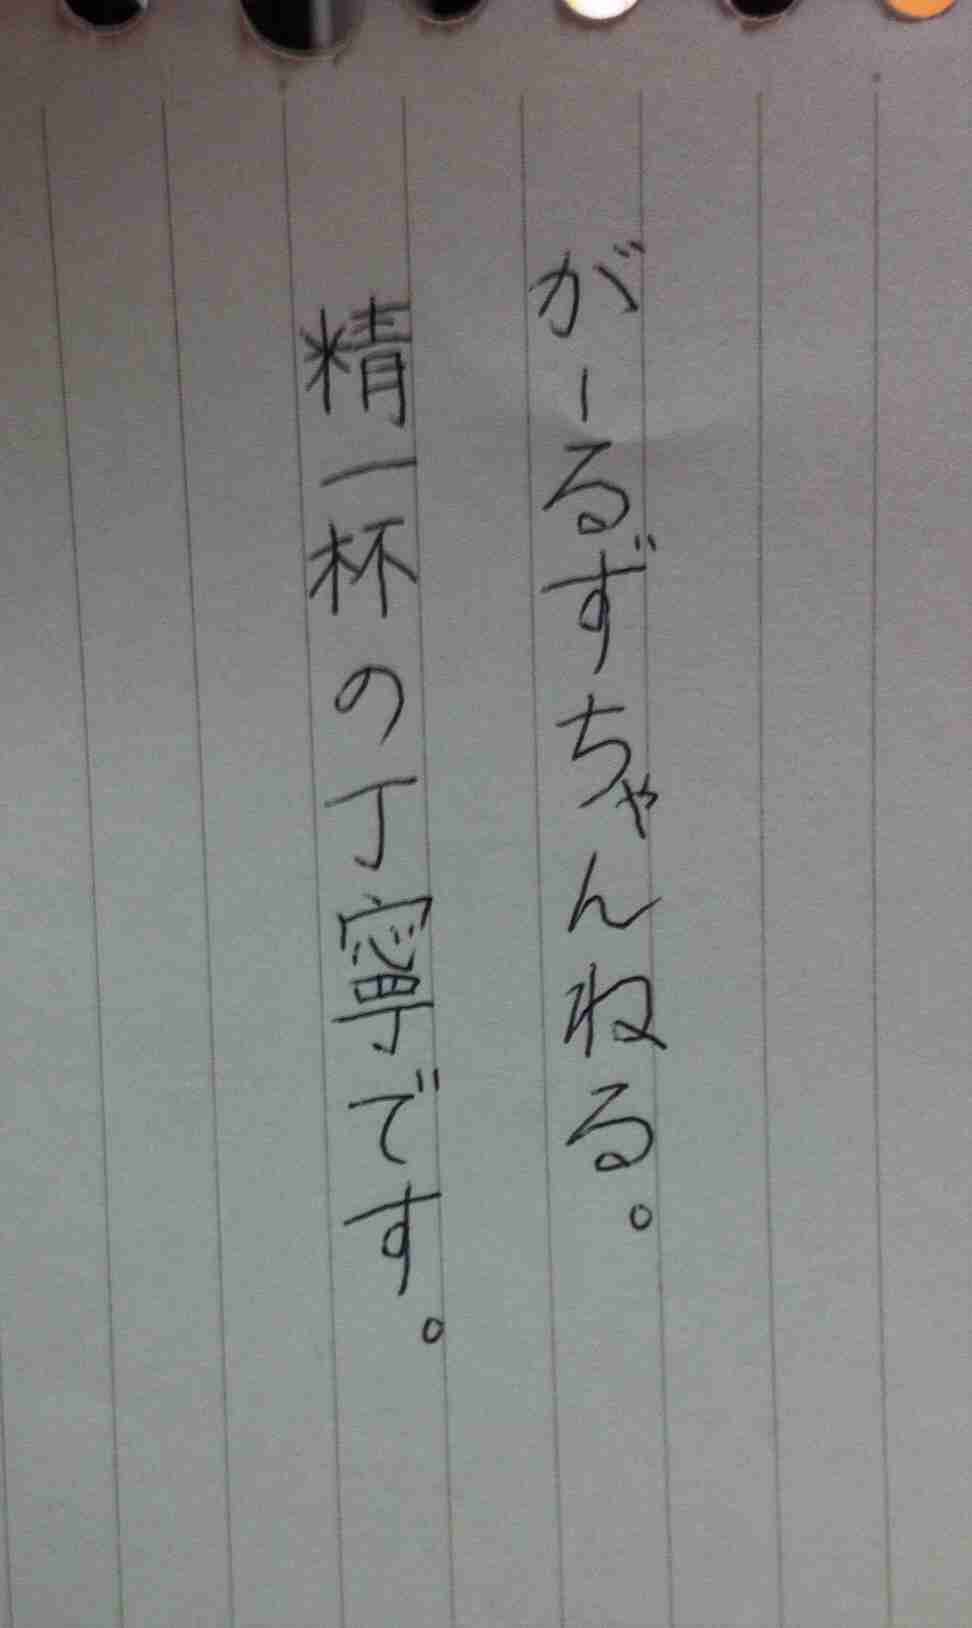 がーるずちゃんねる。
精一杯の丁寧です。